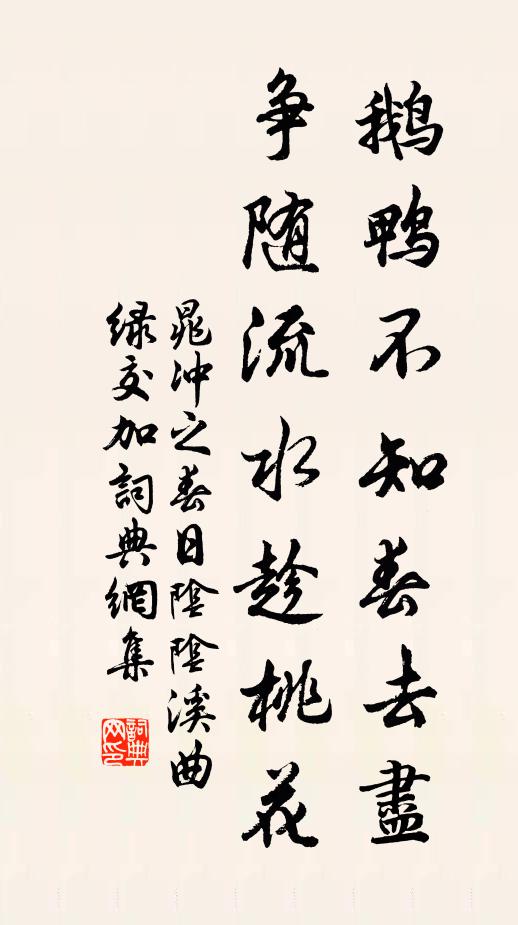 鹅鸭不知春去盡
争随流水趁桃花
晁冲之春日陰陰溪曲
绿交加詞典網集
詞典网印